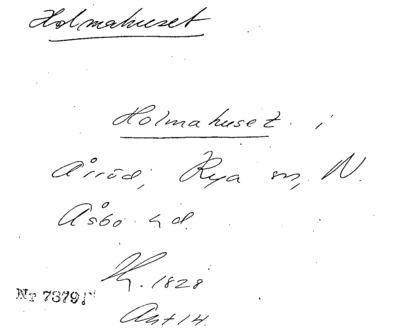 Holmahuset
Holmahuset i
Årröd, Rya sn, N.
Åsbo hd.
Kj. 1828
Ant 14.
Nr 7379